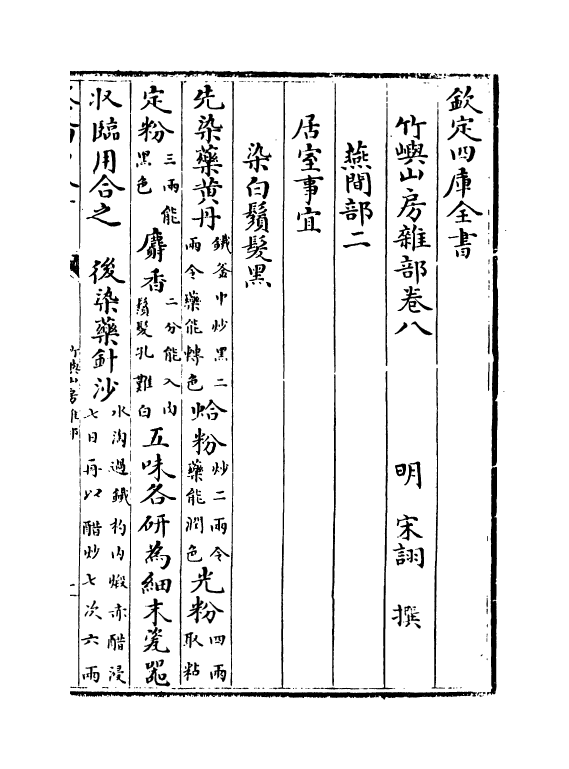 欽定四庫全書
竹嶼山房雜部卷八
明 宋詡 撰
燕間部二
居室事宜
染白鬚髮黑
先染藥黄丹鐵釜中炒黑二兩令藥能轉色蛤粉炒二兩令藥能潤色光粉四兩取粘
定粉三兩能黑色麝香二分能入内鬚髮孔難白五味各研為細末瓷器
收臨用合之 後染藥針沙水淘過鐵杓内煅赤醋浸七日再以醋炒七次六兩
竹嶼山房雜部
一